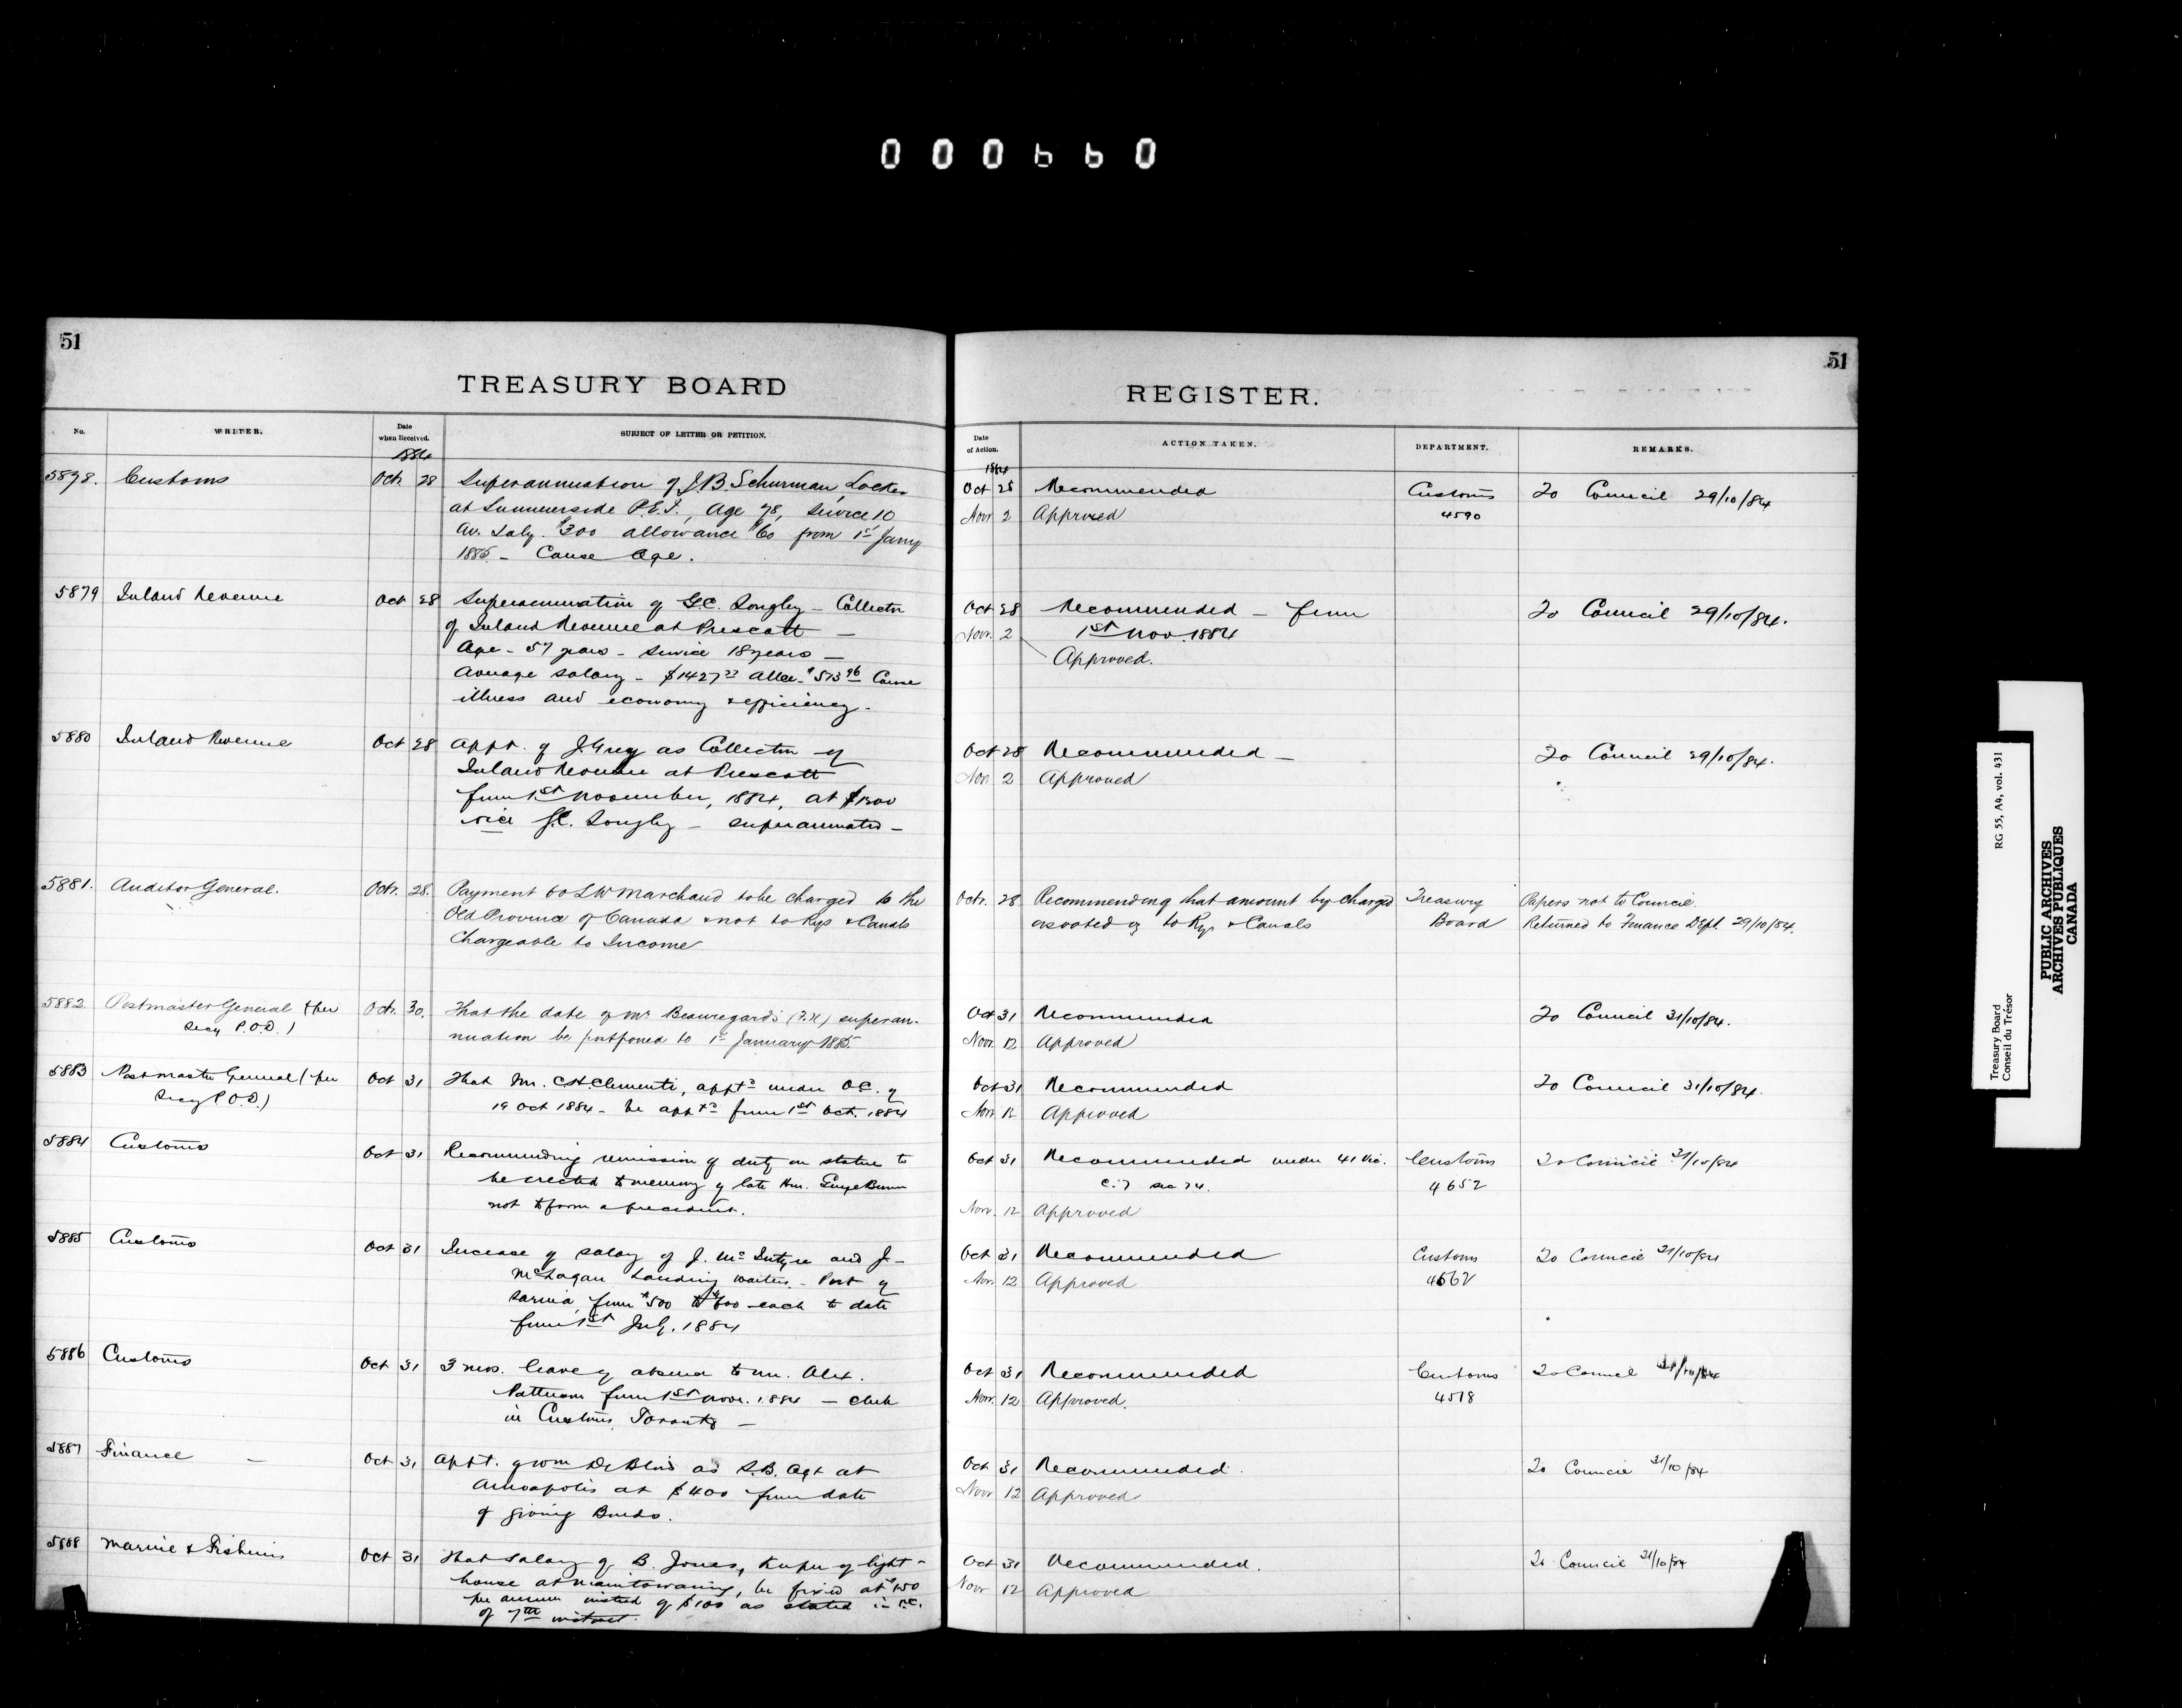 000660
51
TREASURY BOARD
No.
WRITER.
Date when Received.
SUBJECT OF LETTER OR PETITION.
1884
5878. Customs Octr. 28 Superannuation of J.B. Schurman, Locker
at Summerside P.E.I., Age 78, Service 10
Av. Saly. $300 allowance $60 from 1st Jany
1885 - Cause Age.
5879 Inland Revenue Oct 28 Superannuation of G.C. Longley - Collector
of Inland Revenue at Prescott -
Age - 57 years - Service 18 years -
Average Salary - $1427 Allce - $513 96 Cause
illness and economy & efficiency -
5880 Inland Revenue Oct 28 Appt. of J. Grey as Collector of
Inland Revenue at Prescott
from 1st November, 1884, at $1300
vice G.C. Longley - superannuated -
5881. Auditor General. Octr. 28. Payment to L W Marchand to be charged to the
Old Province of Canada & not to Rys & Canals
Chargeable to Income
5882 Postmaster General (per Octr. 30. That the date of Mr Beauregard's superan-
Secy P.O.D.) nuation be postponed to 1st January 1885.
5883 Postmaster General (per Oct 31 That Mr. C.H. Clementi, apptd under O.C. of
Secy P.O.D.) 19 Oct 1884 - be apptd from 1st Oct. 1884
5884 Customs Oct 31 Recommending remission of duty on statue to
be erected to memory of late Hon. George Brown
not to form a precedent.
5885 Customs Oct 31 Increase of salary of J. McIntyre and J.
McLagan Landing Waiters - Port of
Sarnia, from $500 to $600 each to date
from 1st July. 1884
5886 Customs Oct 31 3 mos. leave of absence to Mr. Alex.
from 1st Novr. 1884 - clerk
in Customs, Toronto -
5887 Finance - Oct 31 Appt. of Wm DeBlois as S.B. Agt at
Annapolis at $400 from date
of giving Bonds.
5888 Marine & Fisheries Oct 31 That salary of B. Jones, Keeper of light-
house at Manitowaning, be fixed at $150
per annum instead of $100 as stated in O.C.
of 7th instant.
51
REGISTER.
Date of Action.
ACTION TAKEN.
DEPARTMENT.
REMARKS.
1884
Oct 28 Recommended Customs To Council 29/10/84
Novr 2 Approved 4590
Oct 28 Recommended - from To Council 29/10/84.
Novr. 2 1st Nov. 1884
Approved.
Oct 28 Recommended - To Council 29/10/84.
Nov 2 Approved
Octr. 28 Recommending that amount be charged Treasury Papers not to Council.
as voted to Rys & Canals Board Returned to Finance Dept. 29/10/84.
Oct 31 Recommended To Council 31/10/84.
Novr. 12 Approved
Oct 31 Recommended To Council 31/10/84.
Nov. 12 Approved
Oct 31 Recommended under 41 Vic. Customs To Council 31/10/84
C. 7 Sec 74. 4652
Nov. 12 Approved
Oct 31 Recommended Customs To Council 31/10/84
Nov. 12 Approved 4562
Oct 31 Recommended Customs To Council 31/10/84
Nov. 12 Approved. 4518
Oct 31 Recommended. To Council 31/10/84
Novr 12 Approved
Oct 31 Recommended. To Council 31/10/84
Novr 12 Approved
Treasury Board RG 55, A4, vol. 431
Conseil du Trésor
PUBLIC ARCHIVES
ARCHIVES PUBLIQUES
CANADA